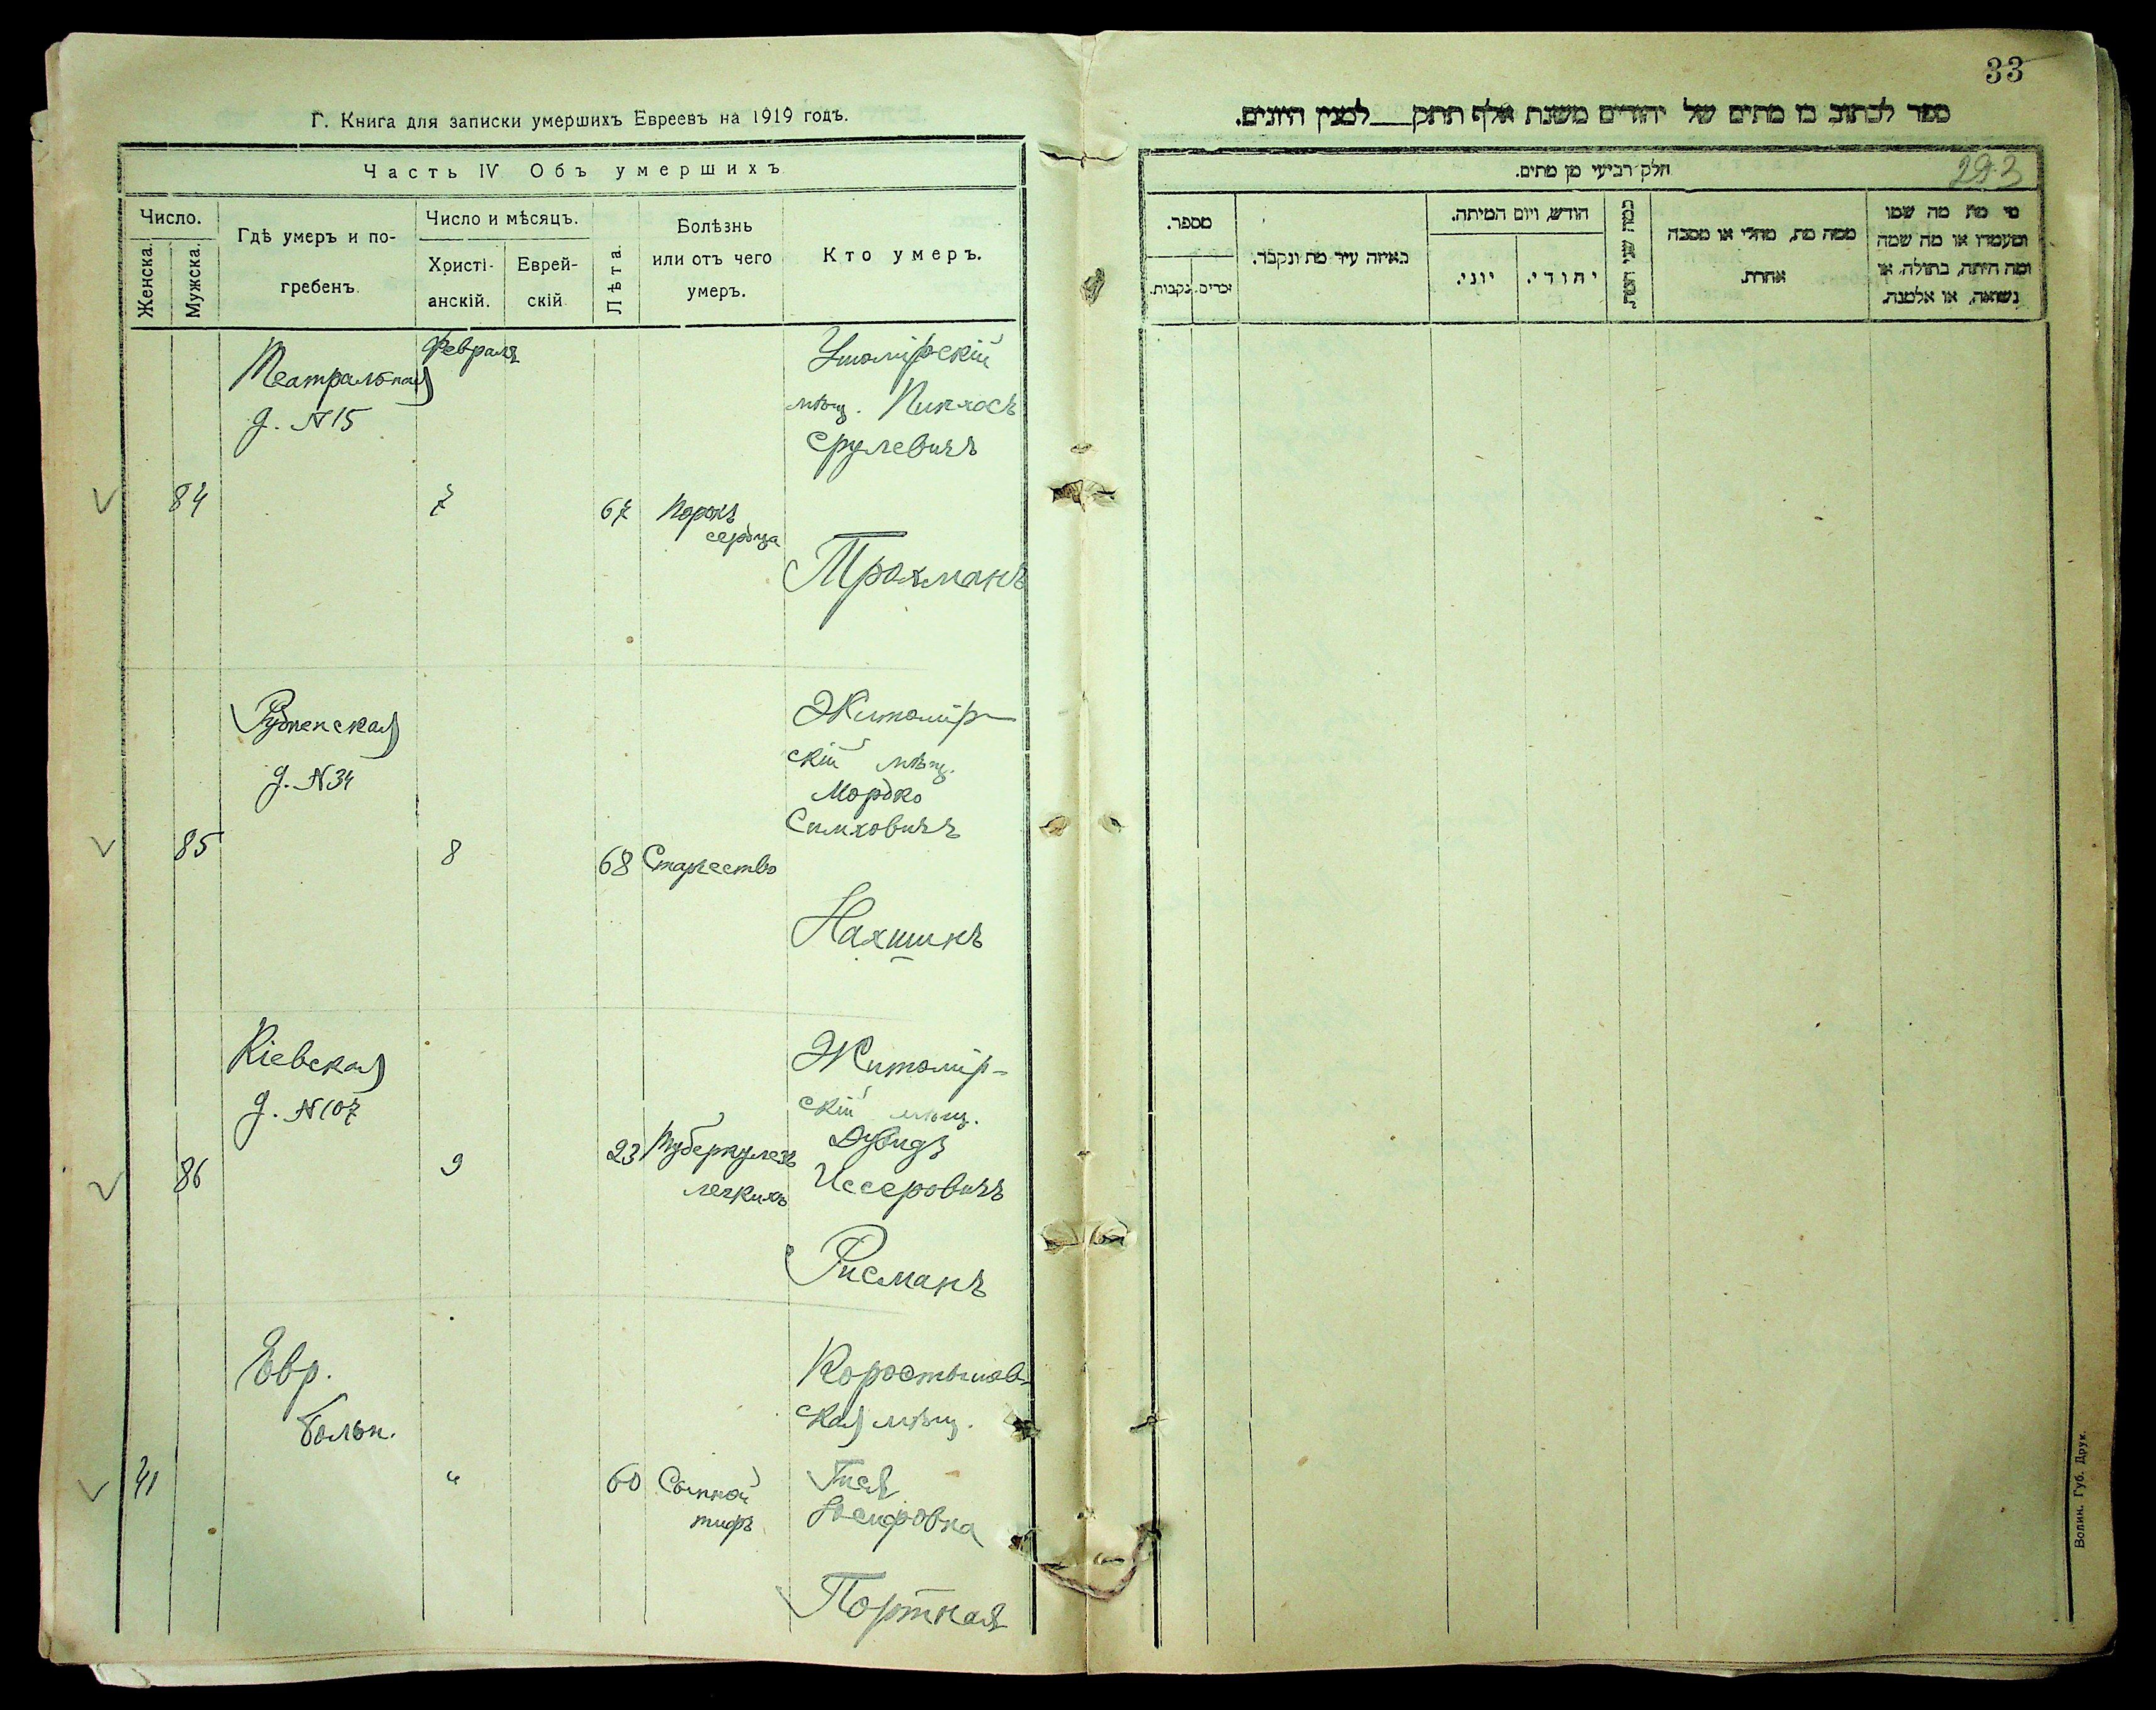 33
Г. Книга для записки умершихъ Евреевъ на 1919 годъ.
Часть IV Объ умершихъ
Число.
Женска.
Мужска.
Гдѣ умеръ и по-
гребенъ.
Число и мѣсяцъ.
Христі-
анскій.
Еврей-
скій
Лѣта.
Болѣзнь
или отъ чего
умеръ.
Кто умеръ.
Театральная
д. №15
Февраля
84
7
67
Порокъ
сердца
Ушомірскій
мѣщ. Пинхосъ
Срулевичъ
Трахманъ
Рудненская
д. №34
85
8
68
Старчество
Житомір-
скій мѣщ.
Мордко
Симховичъ
Нахшинъ
Кіевская
д. №107
86
9
23
Туберкулезъ
легкихъ
Житомір-
скій мѣщ.
Дувидъ
Иссеровичъ
Рисманъ
Евр.
больн.
41
"
60
Сыпной
тифъ
Коростышев-
ская мѣщ.
Гися
Іосифовна
Портная
ספר לכתוב בו מתים של יהודים משנת אלף תתק___ למנין היונים.
חלק רביעי מן מתים.
293
מספר.
זכרים.
נקבות.
באיזה עיר מת ונקבר.
חודש, ויום המיתה.
יוני.
יהודי.
כמה שני המת.
ממה מת, מחלי או מסבה
אחרת.
מי מת מה שמו
ומעמדו או מה שמה
ומה היתה, בתולה, או
נשואה, או אלמנה.
Волин. Губ. Друк.